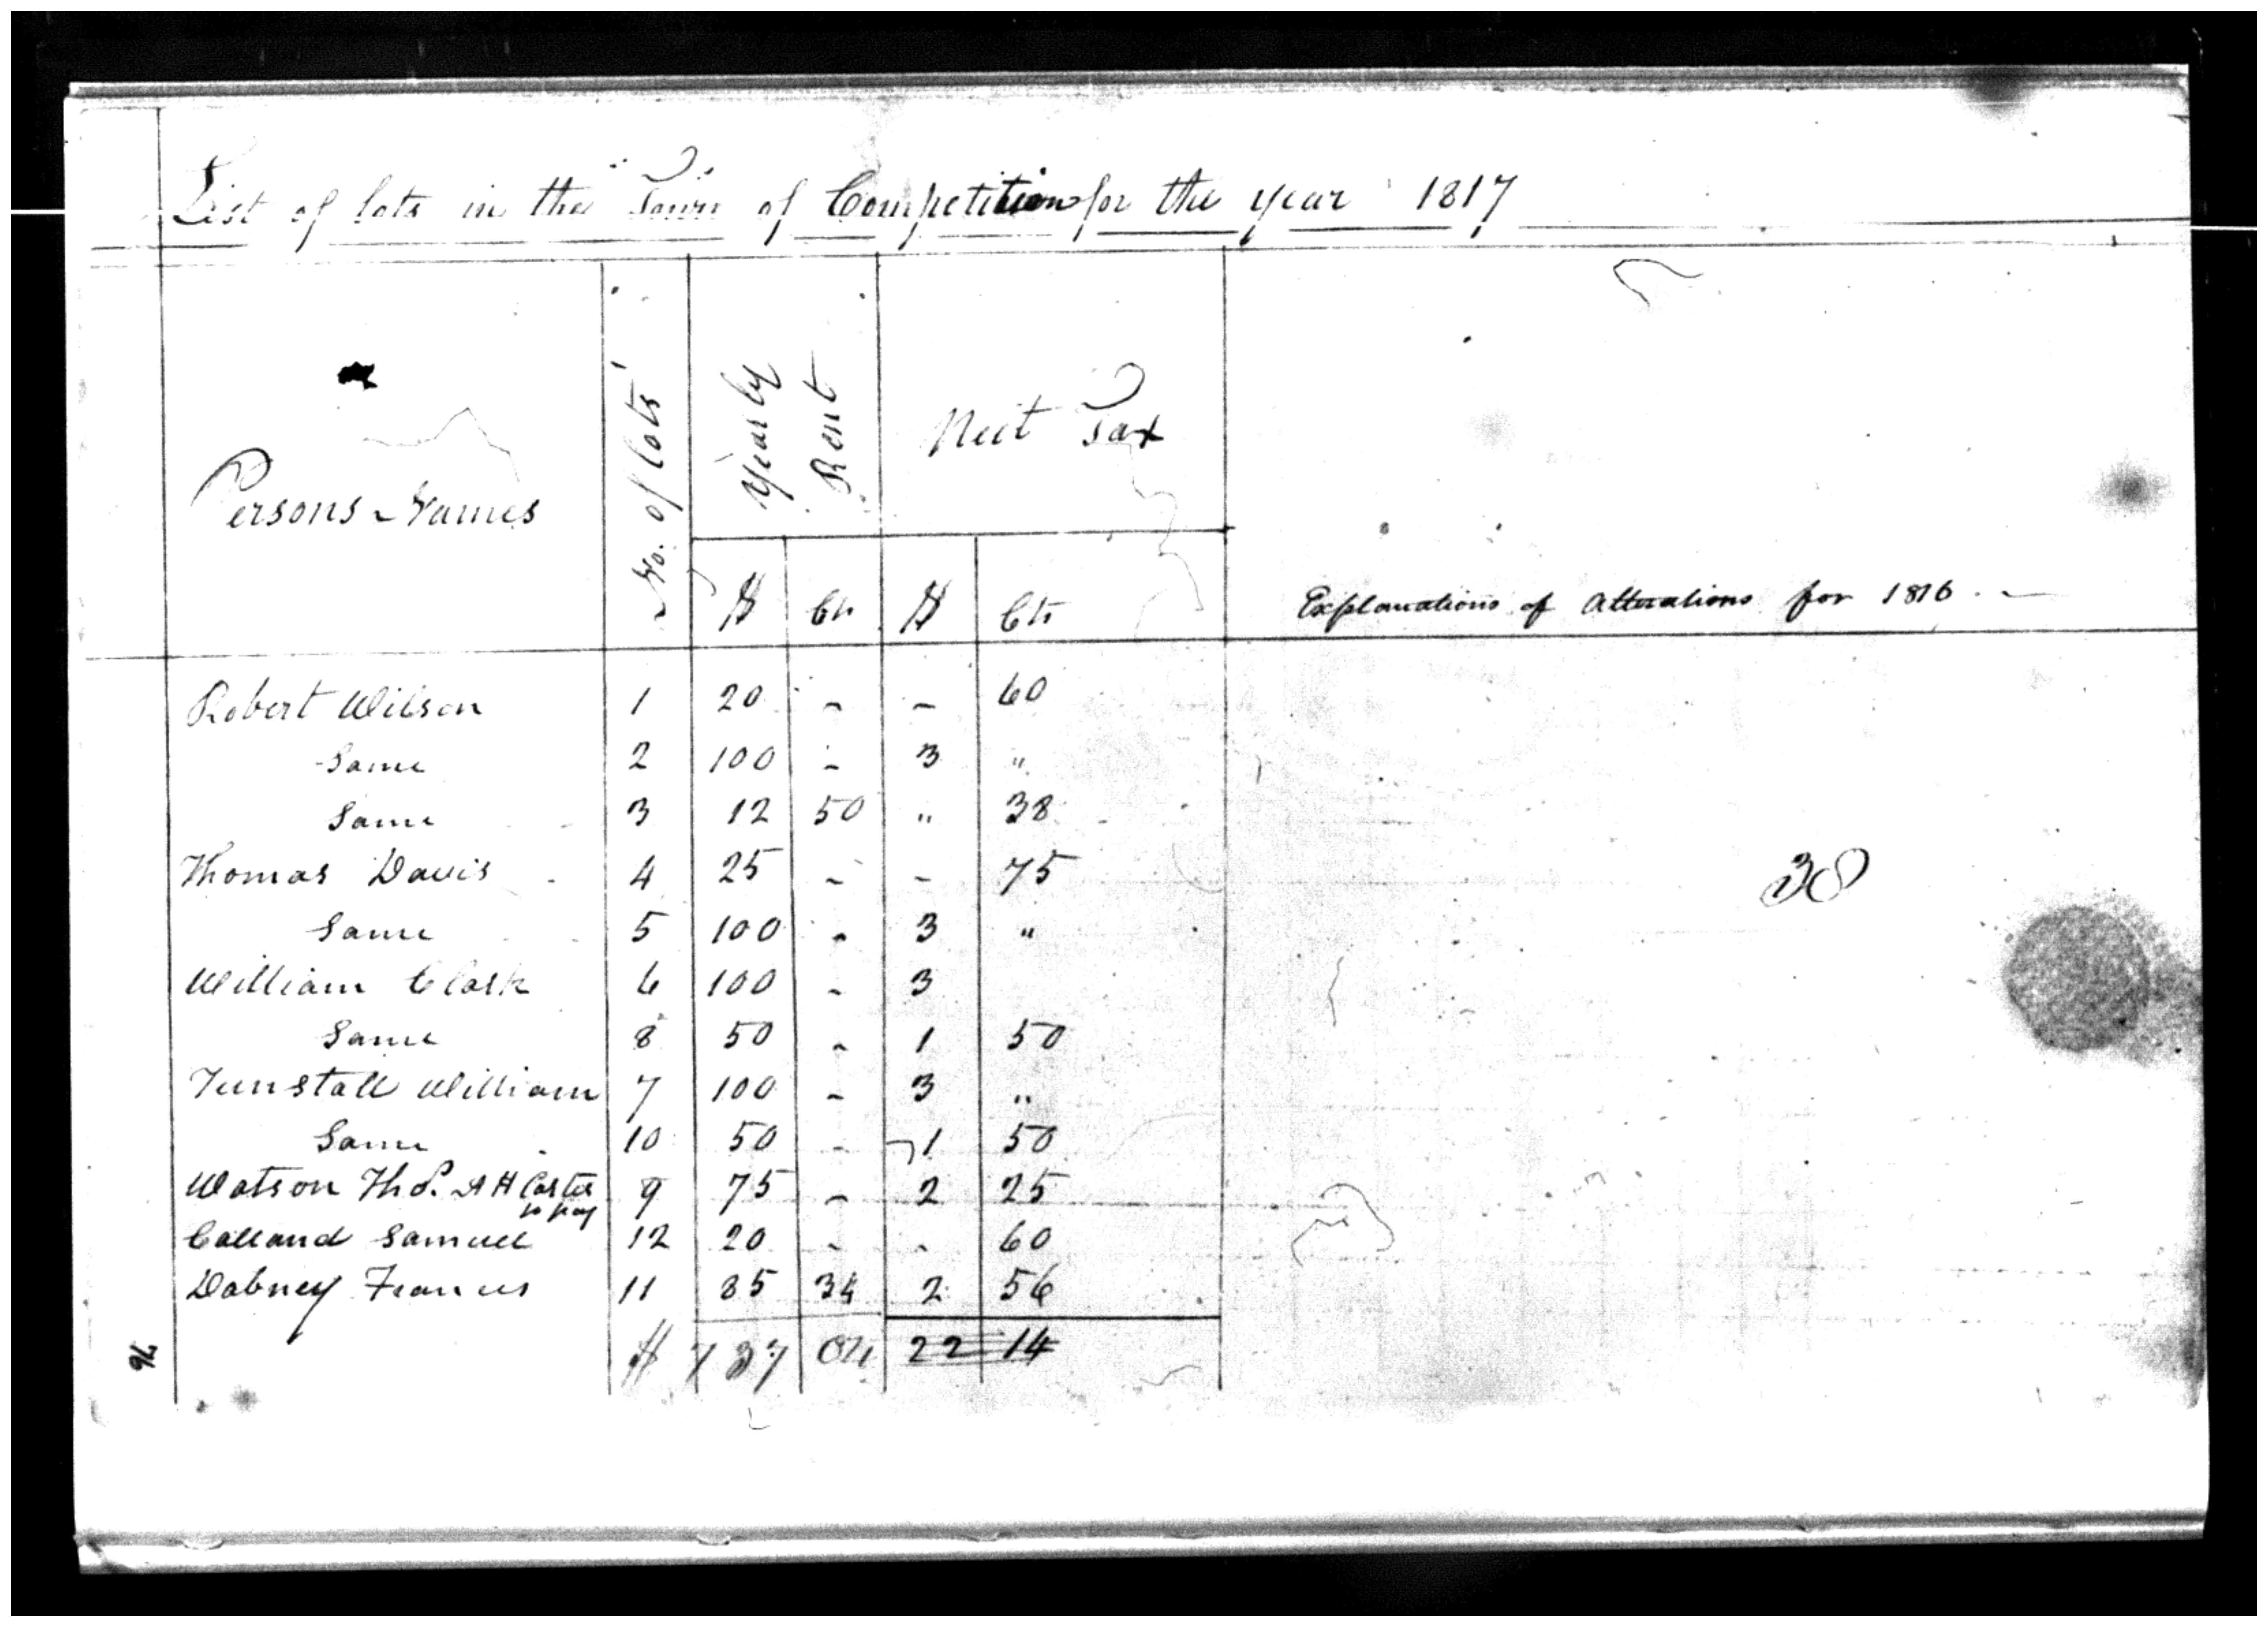 List of lots in the Town of Competition for the year 1817
Persons Names No. of lots Yearly Rent Neit Tax
$ Cts $ Cts Explanations of Alterations for 1816. —
Robert Wilson 1 20 - - 60
Same 2 100 - 3 "
Same 3 12 50 " 38
Thomas Davis 4 25 - - 75
Same 5 100 - 3 "
William Clark 6 100 - 3
Same 8 50 - 1 50
Tunstall William 7 100 - 3 "
Same 10 50 - 1 50
Watson Tho. A H Carter to pay 9 75 - 2 25
Calland Samuel 12 20 - - 60
Dabney Frances 11 85 34 2 56
$ 737 04 22 14
38
76